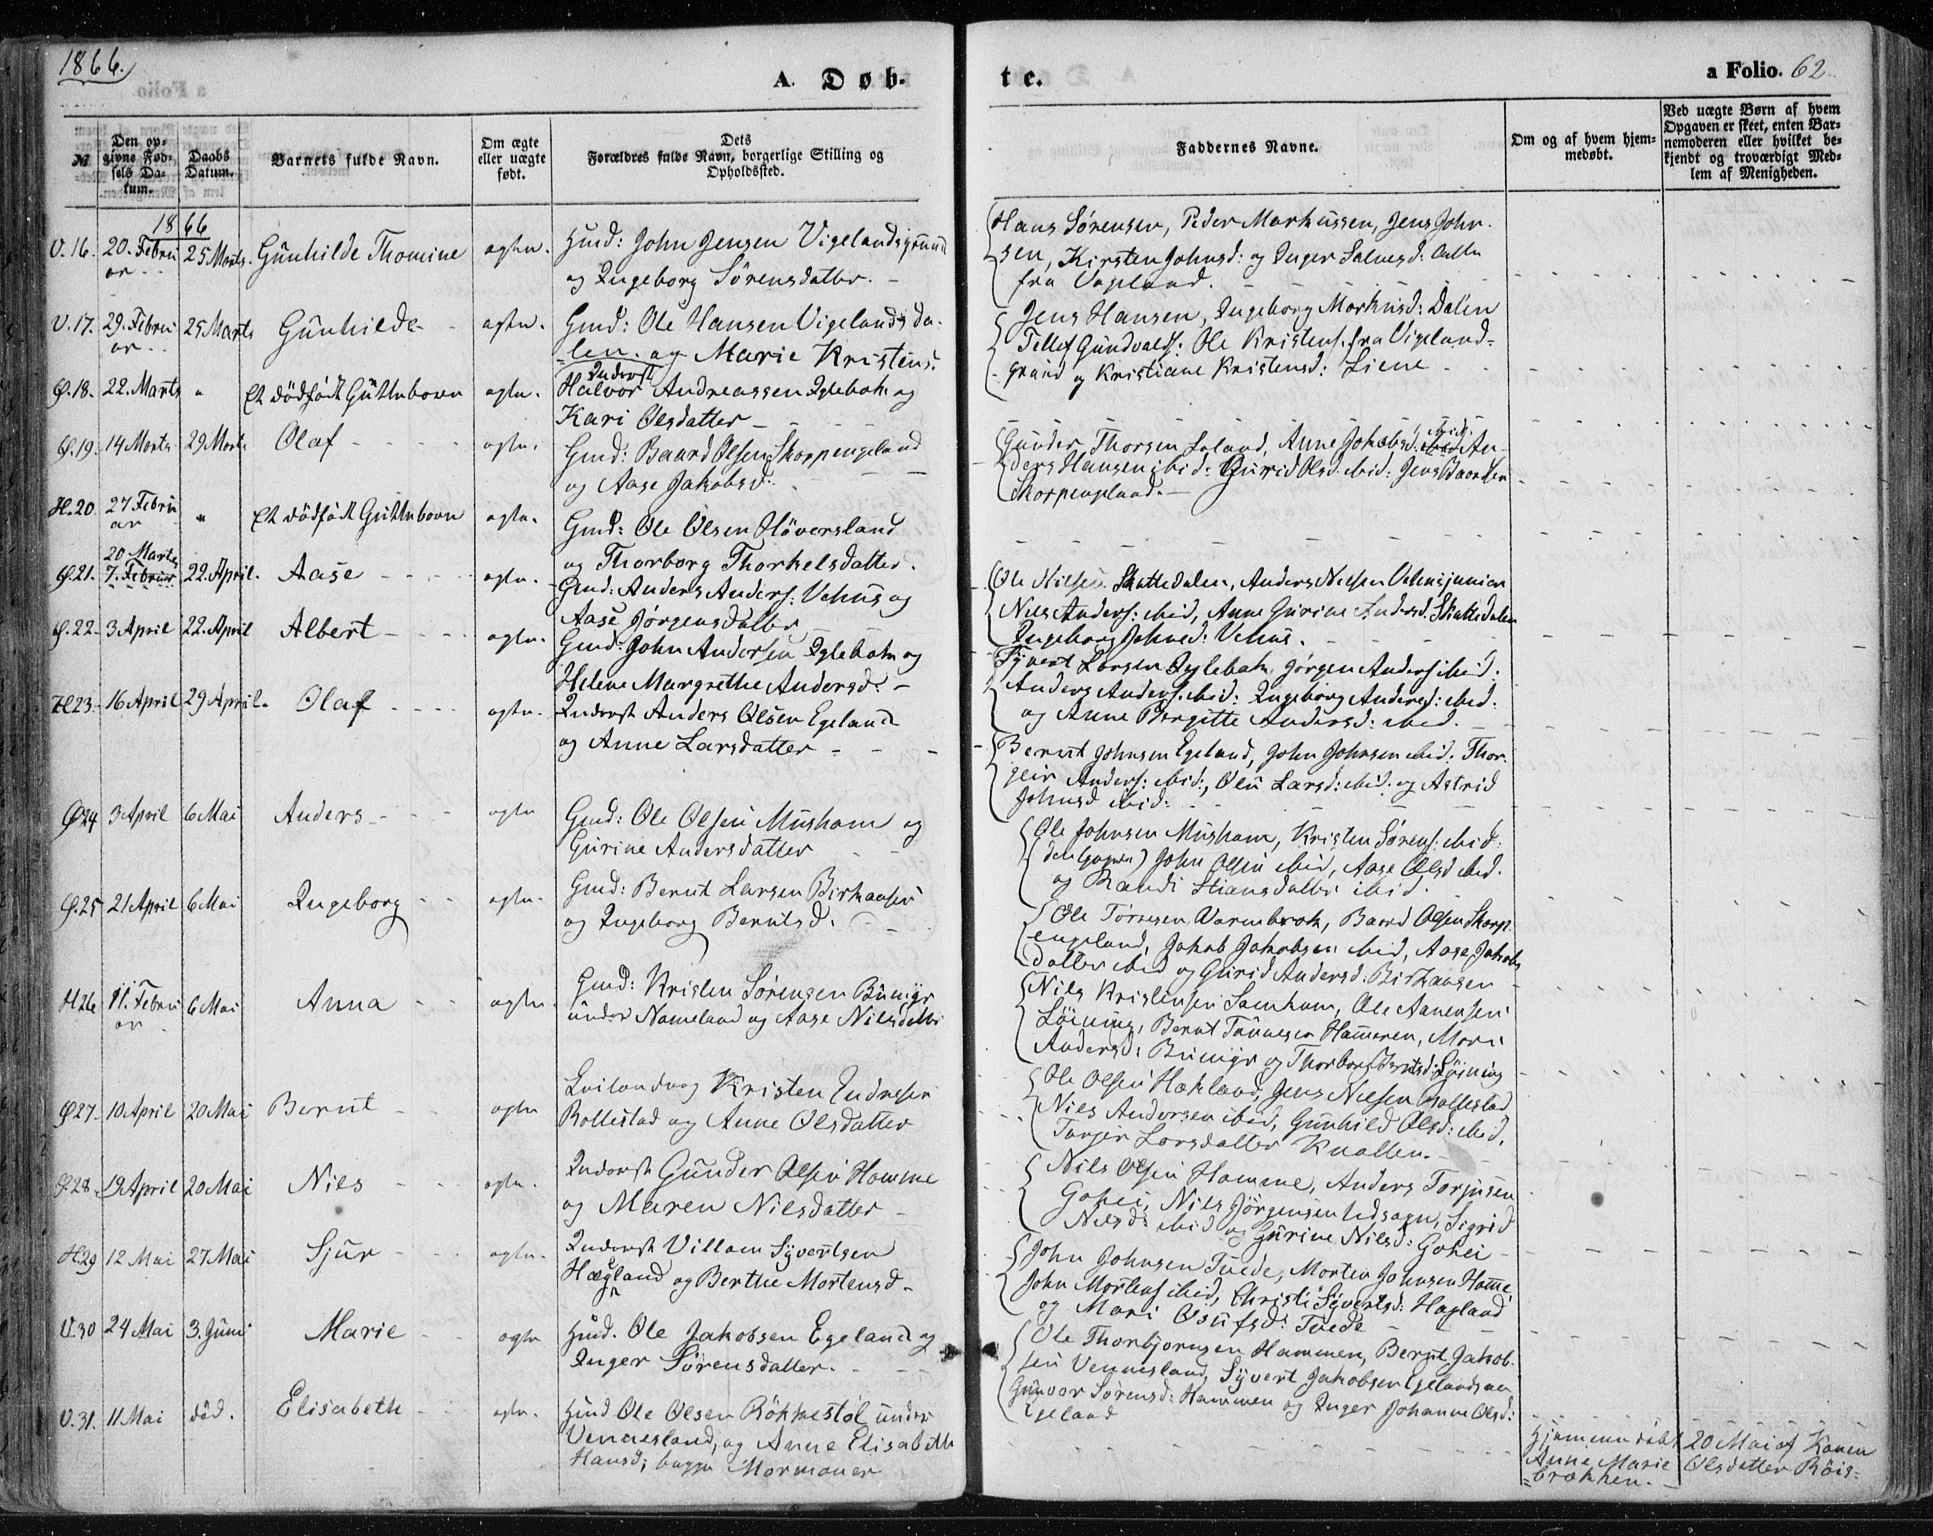 1866.
A. Døb-
te.
a Folio. 62
№
Den op-
givne Fød-
sels Da-
tum.
Daabs
Datum.
Barnets fulde Navn.
Om ægte
eller uægte
født.
Dets
Forældres fulde Navn, borgerlige Stilling og
Opholdssted.
Faddernes Navne.
Om og af hvem hjem-
medøbt.
Ved uægte Børn af hvem
Opgaven er skeet, enten Bar-
nemoderen eller hvilket be-
kjendt og troværdigt Med-
lem af Menigheden.
1866
V.16. 20. Febru
ar 25 Marts. Gunhilde Thomine ægte. Hmd: John Jensen Vigelandsgrund
og Ingeborg Sørensdatter.
Hans Sørensen, Peder Markussen, Jens John-
sen, Kirsten Johnsd: og Inger Salvesd: alle
fra Vigeland.
V.17. 29. Febru
ar 25 Marts Gunhilde ægte. Gmd: Ole Hansen Vigelandsda-
len og Marie Kristens.
Jens Hansen, Ingeborg Markusd: Dalen
Tellef Gundvalds: Ole Kristens. fra Vigeland-
grund og Kristiane Kristensd: Liene
Ø.18. 22. Marts " Et dødfødt Guttebarn ægte. Inderst
Halvor Andreassen Iglebæk og
Kari Olsdatter
Ø.19. 14 Marts 29 Marts Olaf ægte. Gmd: Baard Olsen Skarpengeland
og Aase Jakobsd:
Gunder Thorsen Laland, Anne Jakobsd: ibid: An-
ders Hansen ibid: Gurid Olsd: ibid: Jens Baardsen
Skarpengeland.
H.20. 27 Febru
ar " Et dødfødt Guttebarn ægte. Gmd: Ole Olsen Høversland
og Thorborg Thorkelsdatter.
Ø.21. 20 Marts
7. Februar 22. April. Aase ægte. Gmd: Anders Anders: Vehus og
Aase Jørgensdatter
Ole Nilsen Skattedalen, Anders Nielsen Vehus junior
Nils Anders: ibid, Anne Gurine Andersd. Skattedalen
Ingeborg Johnsd: Vehus.
Ø.22. 3 April 22. April Albert ægte. Gmd: John Andersen Iglebæk og
Helene Margrethe Andersd:
Syvert Larsen Iglebæk, Jørgen Anders: ibid:
Anders Anders. ibid: Ingeborg Andersd: ibid:
og Anne Birgitte Andersd: ibid.
H.23. 16 April 29 April. Olaf ægte. Inderst Anders Olsen Egeland
og Anne Larsdatter
Bernt Johnsen Egeland, John Johnsen ibid: Thor-
geir Anders: ibid:, Oliv Larsd: ibid: og Astrid
Johnsd ibid:
Ø24 3 April 6 Mai Anders ægte Gmd: Ole Olsen Mushom og
Gurine Andersdatter
Ole Johnsen Mushom, Kristen Sørens: ibid:
John Olsen ibid, Aase Olsd ibid.
og Randi Stiansdatter ibid.
Ø.25 21 April 6 Mai Ingeborg ægte. Gmd: Bernt Larsen Birkaasen
og Ingeborg Berntsd:
Ole Tørresen Aarenbrok, Baard Olsen Skarp-
engeland, Jakob Jakobsen ibid, Aase Jakobs
datter ibid og Gurid Andersd: Birkaasen
H26 11. Febru
ar 6 Mai Anna ægte Gmd: Kristen Sørensen Bumyr
under Nameland og Aase Nilsdatter
Nils Kristensen Samkom, Ole Aanensen
Løining, Bernt Tønnesen Hameren, Mari
Andersd: Bumyr og Thorborg Berntsd: Løining
Ø27. 10 April 20 Mai Bernt ægte Leilending Kristen Endresen
Rollestad og Anne Olsdatter
Ole Olsen Hækland, Jens Nielsen Rollestad
Niels Andersen ibid, Gunhild Olsd: ibid,
Torjer Larsdatter Knatten.
Ø.28. 19 April 20 Mai Niels ægte. Inderst Gunder Olsen Homme
og Maren Nilsdatter
Nils Olsen Homme, Anders Torjusen
Gohei, Nils Jørgensen Udsogn, Sigrid
Nilsd: ibid og Gurine Nilsd: Gohei
H.29 12 Mai 27 Mai Sjur ægte. Inderst Villom Syvertsen
Hægeland og Berthe Mortensd
John Johnsen Tvede, Morten Johnsen Home,
John Mortens ibid, Christi Syvertsd: Hægland
og Mari Osufsd: Tvede
V.30 24 Mai 3. Juni Marie ægte Hmd. Ole Jakobsen Egeland og
Inger Sørensdatter.
Ole Thorbjørnsen Hammen, Bernt Jakob-
sen Vennesland, Syvert Jakobsen Egelandsaa
Gunvor Sørensd: Hammen og Inger Johanne Olsd:
Egeland
V.31. 11 Mai død. Elisabeth ægte. Hmd Ole Olsen Røkkestøl under
Vennesland, og Anne Elisabeth
Hansd; begge Mormoner
Hjemmedøbt 20 Mai af Karen
Anne Marie Olsdatter Røis-
brækken.